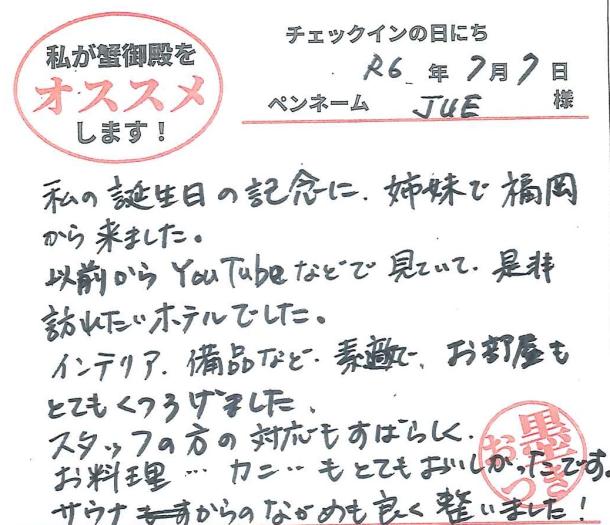 私が蟹御殿を
オススメ
します！
チェックインの日にち
R6 年 7月 7日
ペンネーム JUE 様
私の誕生日の記念に、姉妹で福岡
から来ました。
以前からYouTubeなどで見ていて、是非
訪れたいホテルでした。
インテリア、備品など、素敵で、お部屋も
とてもくつろげました、
スタッフの方の対応もすばらしく、
お料理…カニ…もとてもおいしかったです。
サウナからのながめも良く整いました！
お墨つき